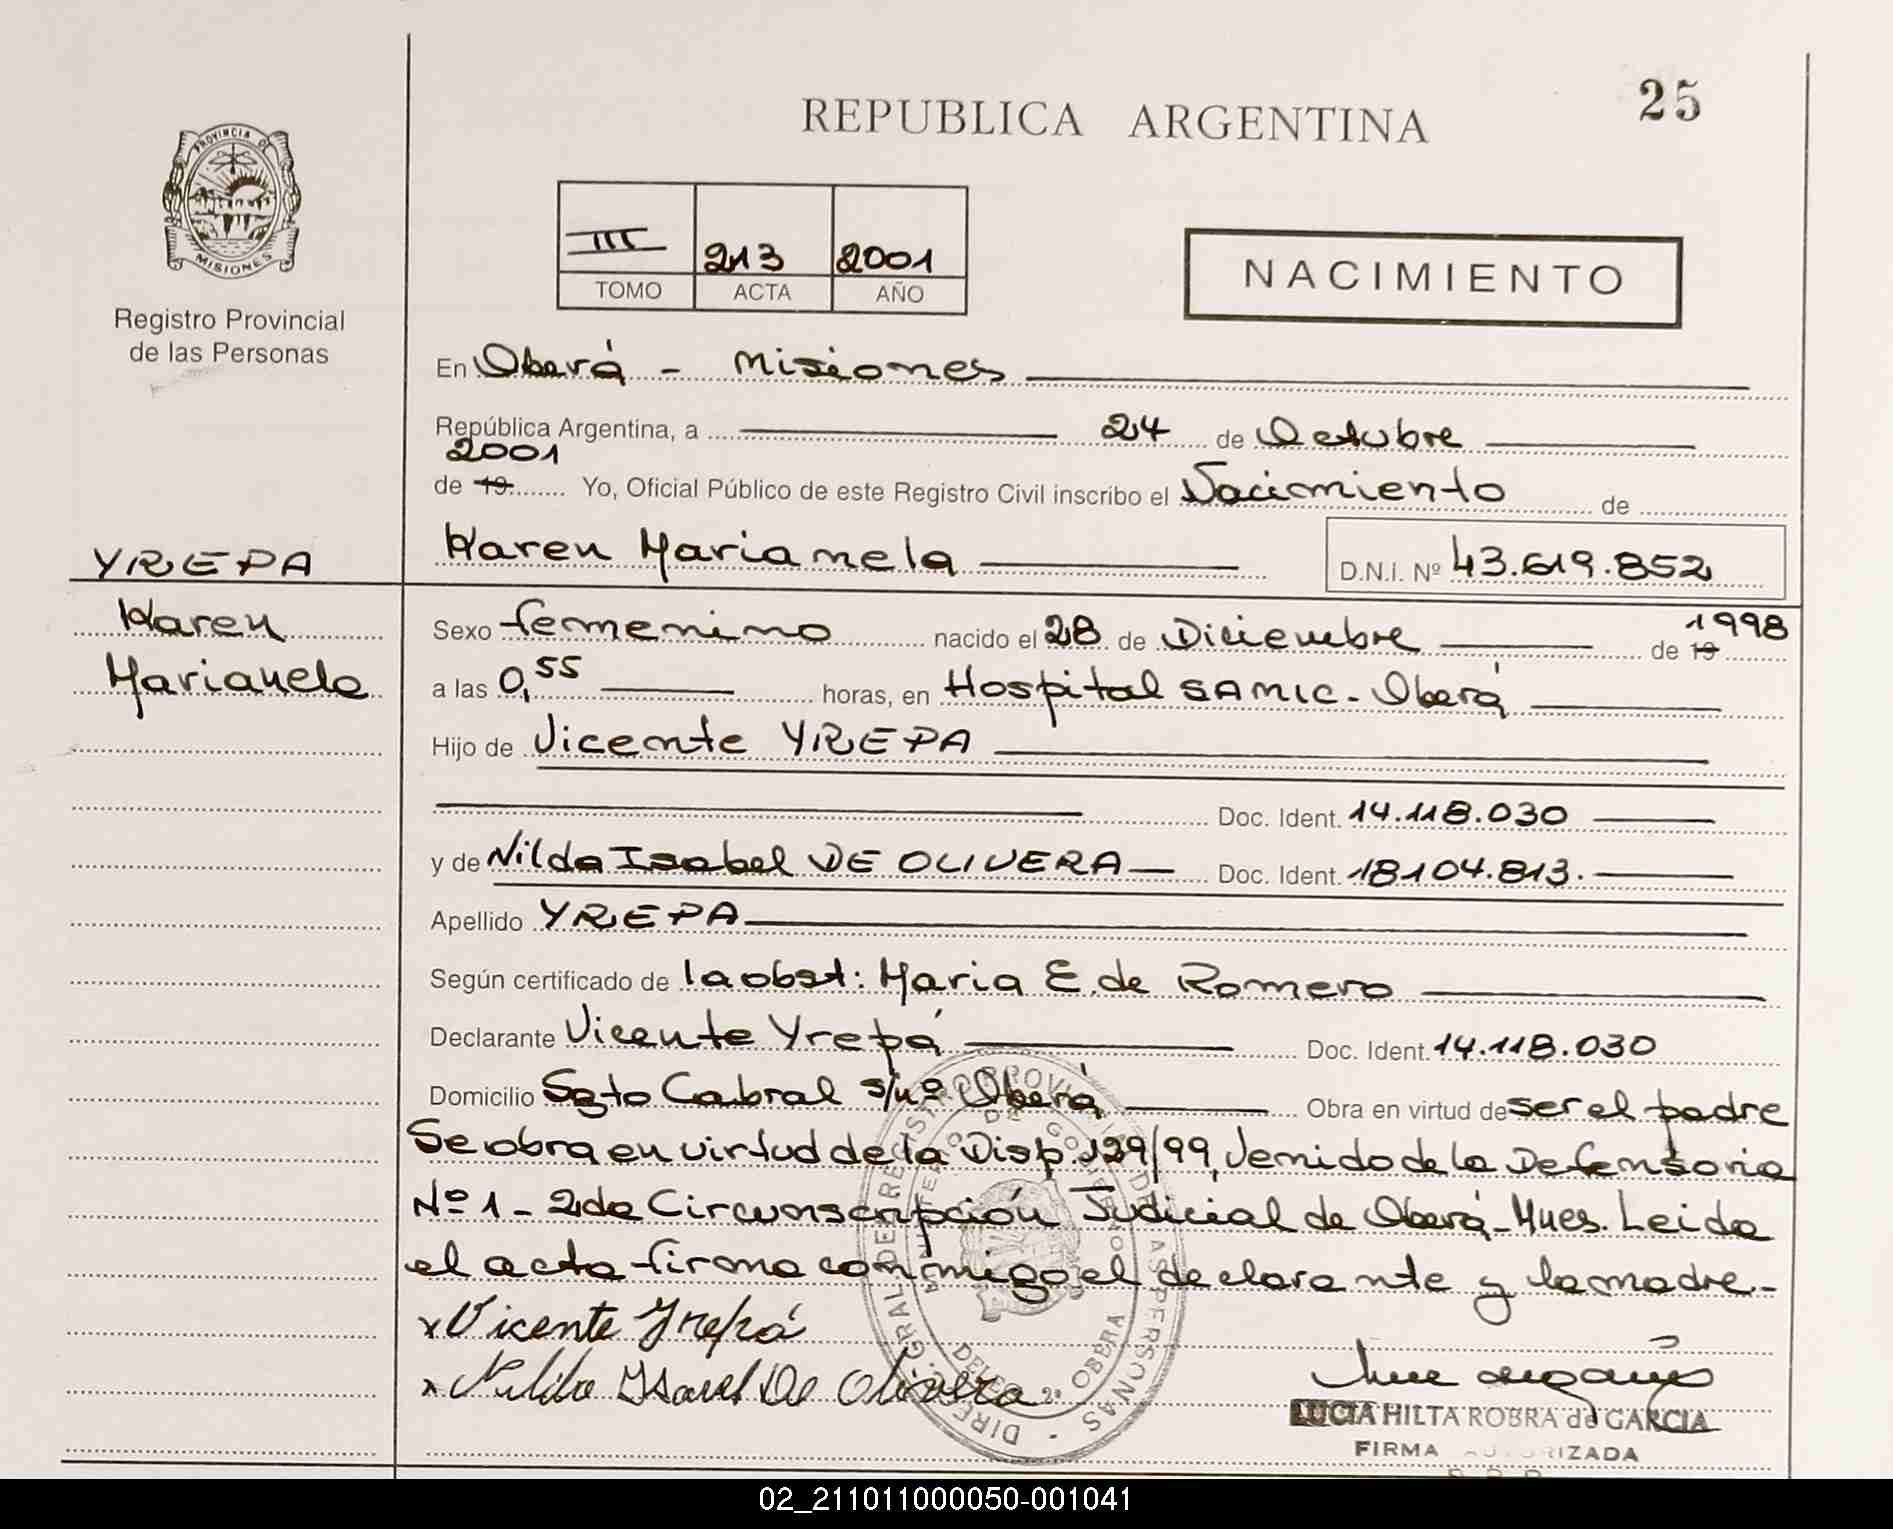 REPUBLICA ARGENTINA
25
PROVINCIA DE
MISIONES
Registro Provincial
de las Personas
III 213 2001
TOMO ACTA AÑO
NACIMIENTO
En Oberá - Misiones
República Argentina, a 24 de Octubre
2001
de 19 Yo, Oficial Público de este Registro Civil inscribo el Nacimiento de
Karen Marianela D.N.I. Nº 43.619.852
YREPA
Karen
Marianela
Sexo femenino nacido el 28 de Diciembre de 19 1998
a las 0,55 horas, en Hospital SAMIC - Oberá
Hijo de Vicente YREPA
Doc. Ident. 14.118.030
y de Nilda Isabel DE OLIVERA Doc. Ident. 18104.813.
Apellido YREPA
Según certificado de la obst: Maria E. de Romero
Declarante Vicente Yrepá Doc. Ident. 14.118.030
Domicilio Sgto Cabral s/nº Oberá Obra en virtud de ser el padre
Se obra en virtud de la Disp. 129/99, Venido de la Defensoria
Nº 1 - 2da Circunscripción Judicial de Oberá - Mnes. Leida
el acta firma conmigo el declarante y la madre.-
x Vicente Yrepá
x Nilda Isabel De Olivera
LUCIA HILTA ROBRA de GARCIA
FIRMA AUTORIZADA
02_211011000050-001041